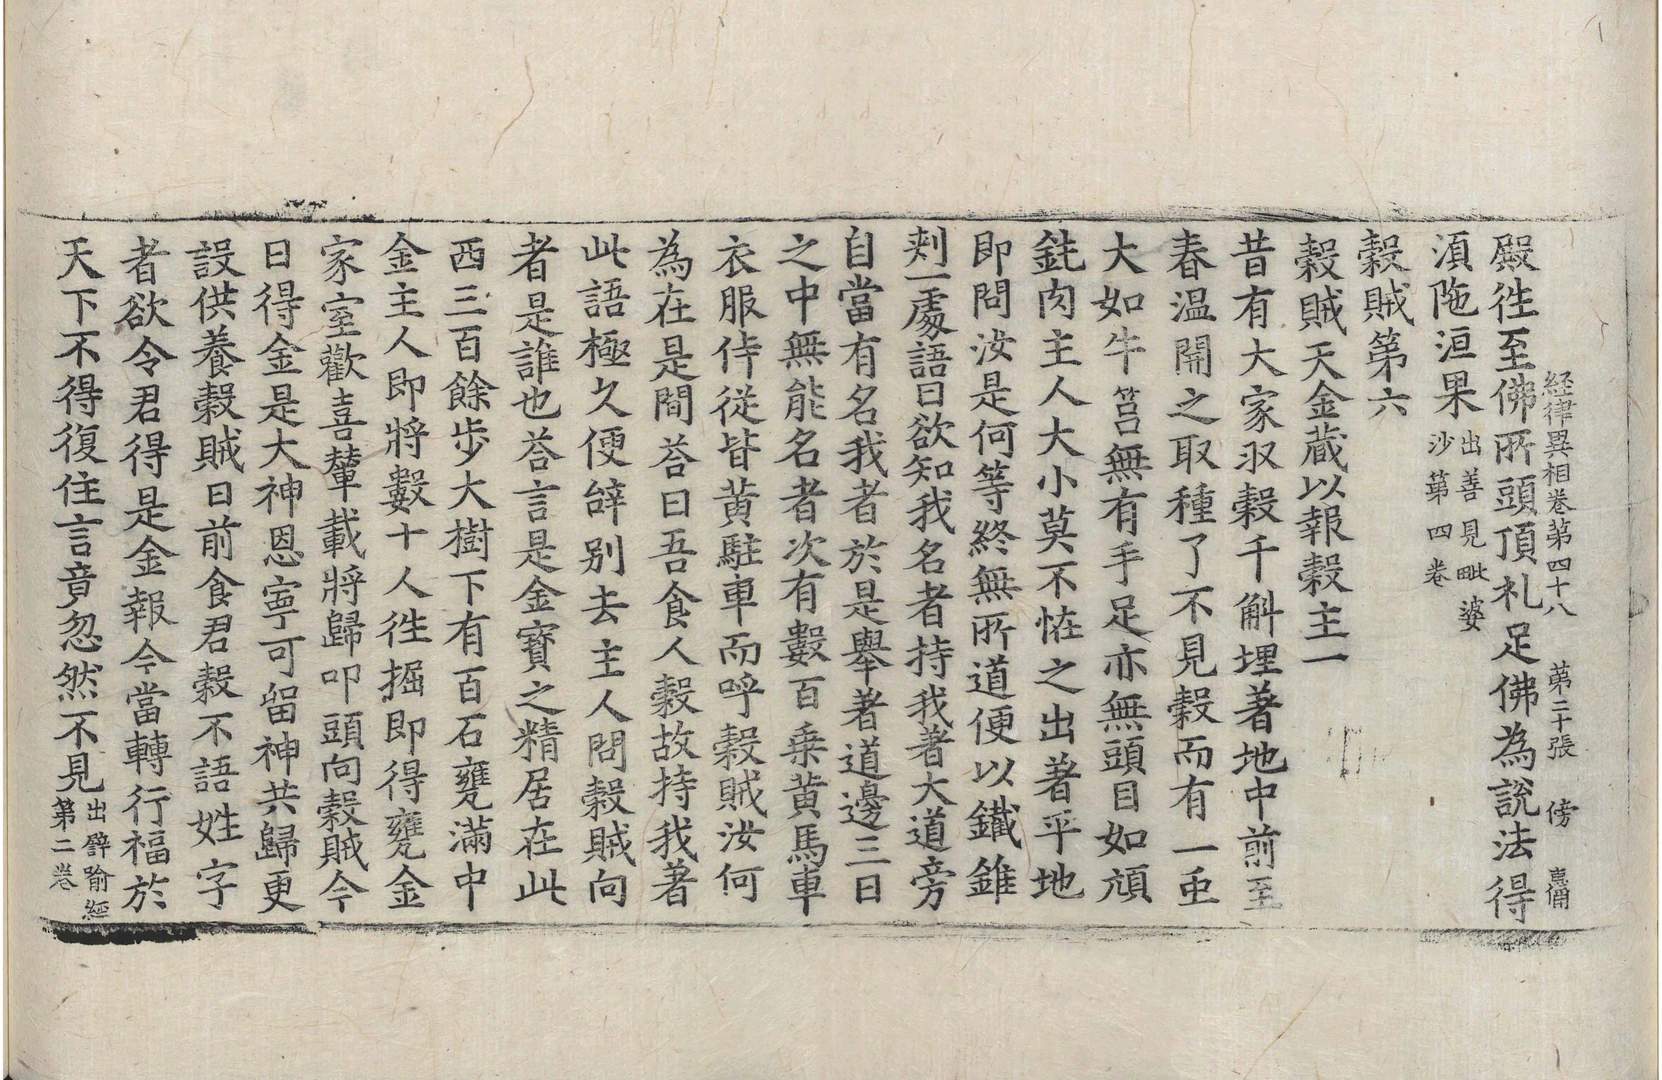 経律異相巻第四十八 第二十張 傍 惠備
殿徃至佛所頭頂礼足佛為說法得
湏陁洹果出善見毗婆沙第四卷
糓賊第六
糓賊天金蔵以報糓主一
昔有大家収糓千斛埋著地中前至
春温開之取種了不見糓而有一虫
大如牛筥無有手足亦無頭目如頑
鈍肉主人大小莫不恠之出著平地
即問汝是何等終無所道便以鐵錐
刾一處語曰欲知我名者持我著大道旁
自當有名我者於是舉著道邊三日
之中無能名者次有數百乗黄馬車
衣服侍從皆黄駐車而呼糓賊汝何
為在是間荅曰吾食人糓故持我著
此語極久便辝別去主人問糓賊向
者是誰也荅言是金寳之精居在此
西三百餘步大樹下有百石甕滿中
金主人即將數十人徃掘即得甕金
家室歡喜輦載將歸叩頭向糓賊今
日得金是大神恩寧可留神共歸更
設供養糓賊曰前食君糓不語姓字
者欲令君得是金報今當轉行福於
天下不得復住言竟忽然不見出譬喻經第二卷